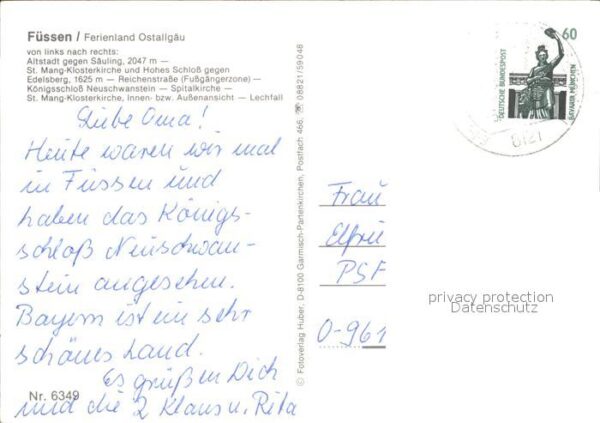 Füssen / Ferienland Ostallgäu
von links nach rechts:
Altstadt gegen Säuling, 2047 m —
St. Mang-Klosterkirche und Hohes Schloß gegen
Edelsberg, 1625 m — Reichenstraße (Fußgängerzone) —
Königsschloß Neuschwanstein — Spitalkirche —
St. Mang-Klosterkirche, Innen- bzw. Außenansicht — Lechfall
Liebe Oma!
Heute waren wir mal
in Füssen und
haben das Königs-
schloß Neuschwan-
stein angesehen.
Bayern ist ein sehr
schönes Land.
Es grüßen Dich
und die 2 Klaus u. Rita
Nr. 6349
© Fotoverlag Huber, D-8100 Garmisch-Partenkirchen, Postfach 466, ☎ 08821/59048
60
DEUTSCHE BUNDESPOST
BAVARIA MÜNCHEN
8121
Frau
Elfrie
PSF
O-961
privacy protection
Datenschutz